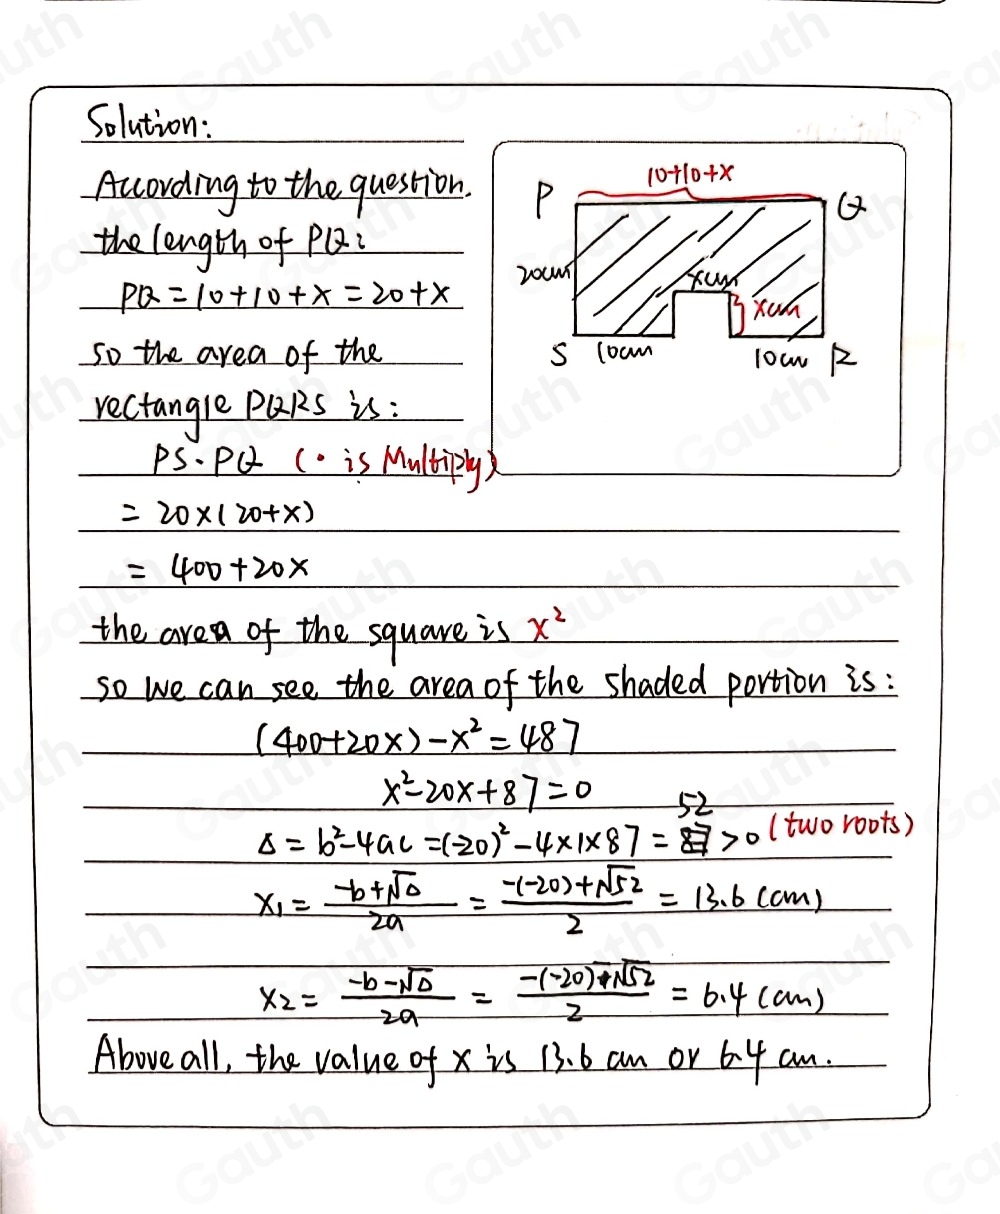 Solution:
According to the question.
the length of PQ:
PQ = 10+10+x = 20+x
so the area of the
rectangle PQRS is:
PS·PQ (· is Multiply)
= 20×(20+x)
= 400+20x
the area of the square is x²
so we can see the area of the shaded portion is:
(400+20x)-x² = 487
x²-20x+87=0
Δ = b²-4ac =(-20)²-4×1×87 = 52 >0 (two roots)
x₁ = (-b+√Δ)/2a = (-(-20)+√52)/2 = 13.6 (cm)
x₂ = (-b-√Δ)/2a = (-(-20)-√52)/2 = 6.4 (cm)
Above all, the value of x is 13.6 cm or 6.4 cm.
10+10+x
P
Q
20cm
xcm
xcm
S 10cm
10cm R
Gauth